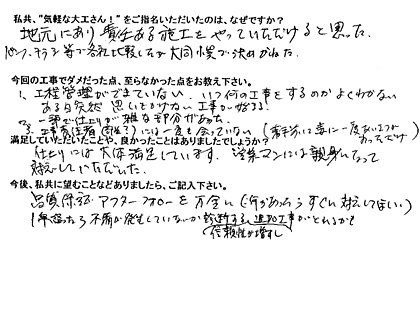 私共、"気軽な大工さん！"をご指名いただいたのは、なぜですか？
地元にあり責任ある施工をやっていただけると思った。
パンフ、チラシ等で各社比較したが大同小異で決めかねた。
今回の工事でダメだった点、至らなかった点をお教え下さい。
1、工程管理ができていない。いつ何の工事をするのかよくわからない
ある日突然思いもかけない工事が始まる！
2、一部で仕上りが雑な部分があった。
3、工事責任者(  )には一度も会っていない(着手前に妻に一度あいさつがあっただけ)
満足していただいたことや、良かったことはありましたでしょうか？
仕上りには大体満足しています。営業マンには親身になって
対応していただいた。
今後、私共に望むことなどありましたら、ご記入下さい。
品質保証アフターフォローを万全に(何かあったらすぐに対応してほしい)
1年経ったら不備が発生していないか診断する
信頼性が増す